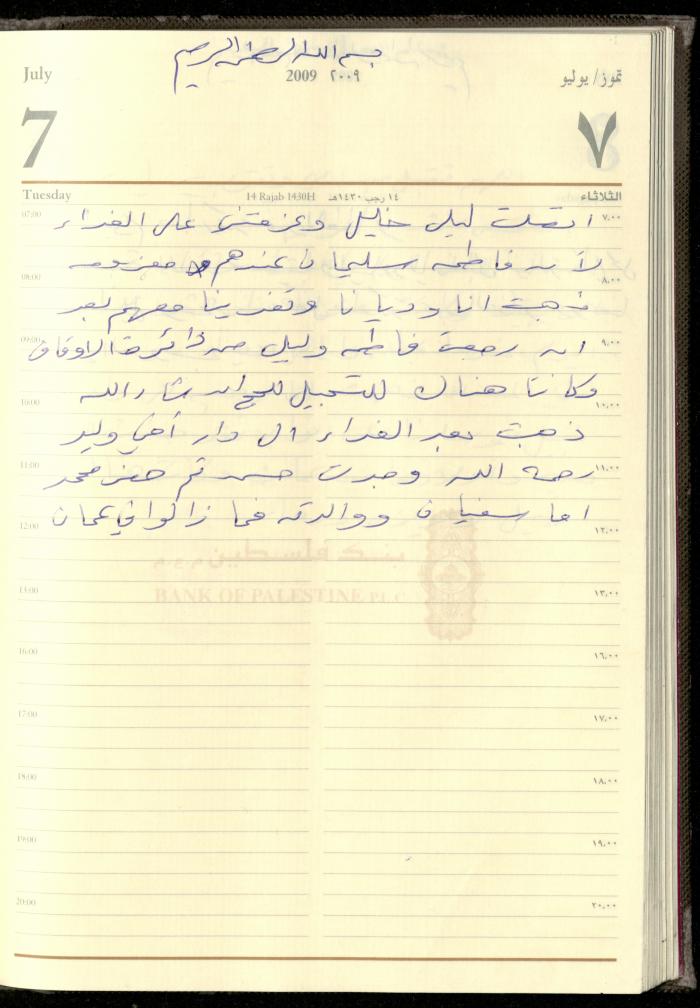 بسم الله الرحمن الرحيم
July 2009 ٢٠٠٩ تموز/ يوليو
7 ٧
Tuesday 14 Rajab 1430H ١٤ رجب ١٤٣٠هـ الثلاثاء
07:00 اتصلت ليلى خليل وعزمتنى على الغداء ٧،٠٠
لأنه فاطمه سليمان عندهم معزومه
08:00 ٨،٠٠
ذهبت انا وديانا وتغدينا معهم بعد
09:00 انه رجعت فاطمه وليلى من دائرة الاوقاف ٩،٠٠
وكانتا هناك للتسجيل للحج انشاء الله
10:00 ١٠،٠٠
ذهبت بعد الغداء الى دار أخي وليد
11:00 رحمه الله وجدت حسه ثم محمد ١١،٠٠
اما سفيان ووالدته فما زالوا في عمان
12:00 ١٢،٠٠
بنك فلسطين م.ع.م
BANK OF PALESTINE PLC
15:00 ١٣،٠٠
16:00 ١٦،٠٠
17:00 ١٧،٠٠
18:00 ١٨،٠٠
19:00 ١٩،٠٠
20:00 ٢٠،٠٠